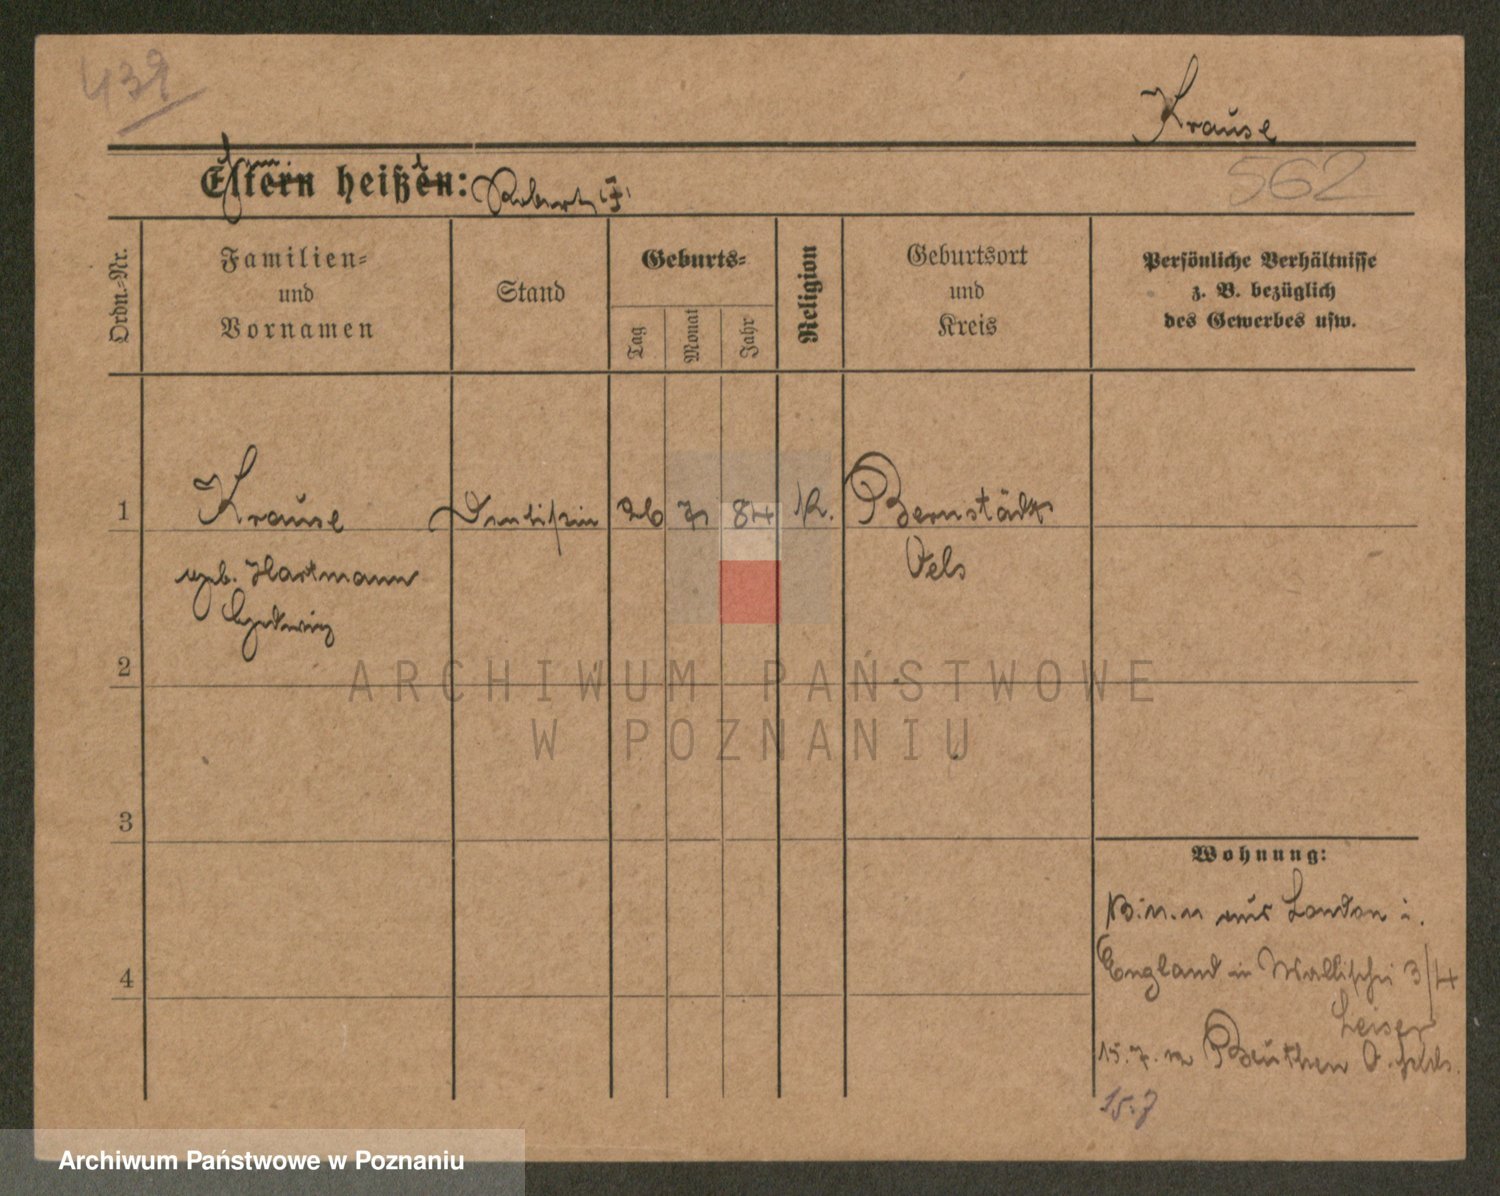 439
Krause
562
Eltern heißen: Robert
Ordn.-Nr.
Familien-
und
Vornamen
Stand
Geburts-
Tag
Monat
Jahr
Religion
Geburtsort
und
Kreis
Persönliche Verhältnisse
z. B. bezüglich
des Gewerbes usw.
1 Krause 26 7 84 Bernstadt
geb. Hartmann Oels
Hedwig
2
ARCHIWUM PAŃSTWOWE
W POZNANIU
3
Wohnung:
aus London i.
4
England in Wallischei 3/4
Leiser
15.7. n Beuthen O. Schles.
15.7
Archiwum Państwowe w Poznaniu